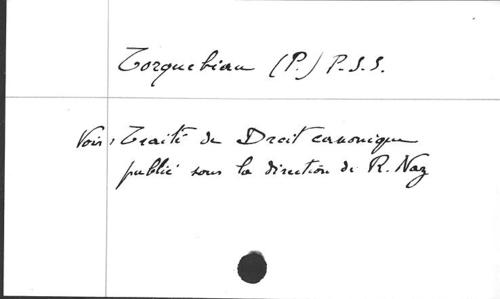 Torquebiau (P.) P.S.S.
Voir, Traité de Droit canonique
publié sous la direction de R. Naz